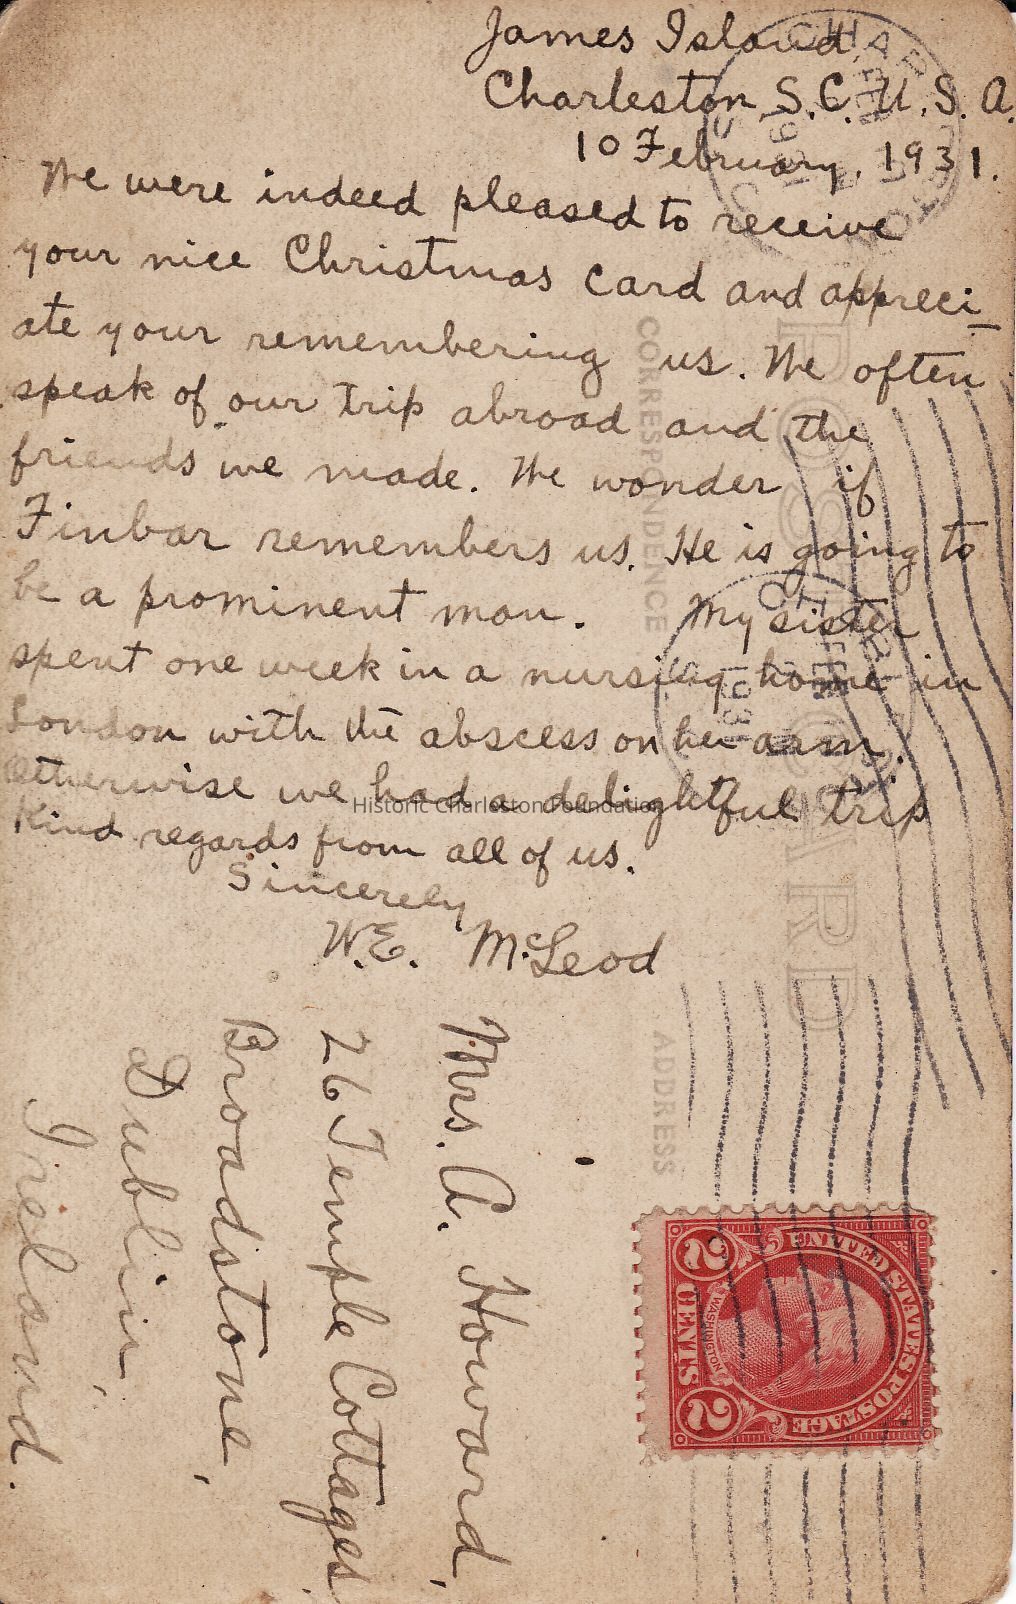 James Island,
Charleston, S.C. U.S.A.
10 February, 1931.
We were indeed pleased to receive
your nice Christmas card and appreci-
ate your remembering us. We often
speak of our trip abroad and the
friends we made. We wonder if
Finbar remembers us. He is going to
be a prominent man. My sister
spent one week in a nursing home in
London with the abscess on her arm.
Otherwise we had a delightful trip
Kind regards from all of us.
Sincerely
W.E. McLeod
Historic Charleston Foundation
Mrs. A. Howard,
26 Temple Cottages
Broadstone,
Dublin,
Ireland.
POST CARD
CORRESPONDENCE
ADDRESS
UNITED STATES POSTAGE
WASHINGTON
2 CENTS 2
1931